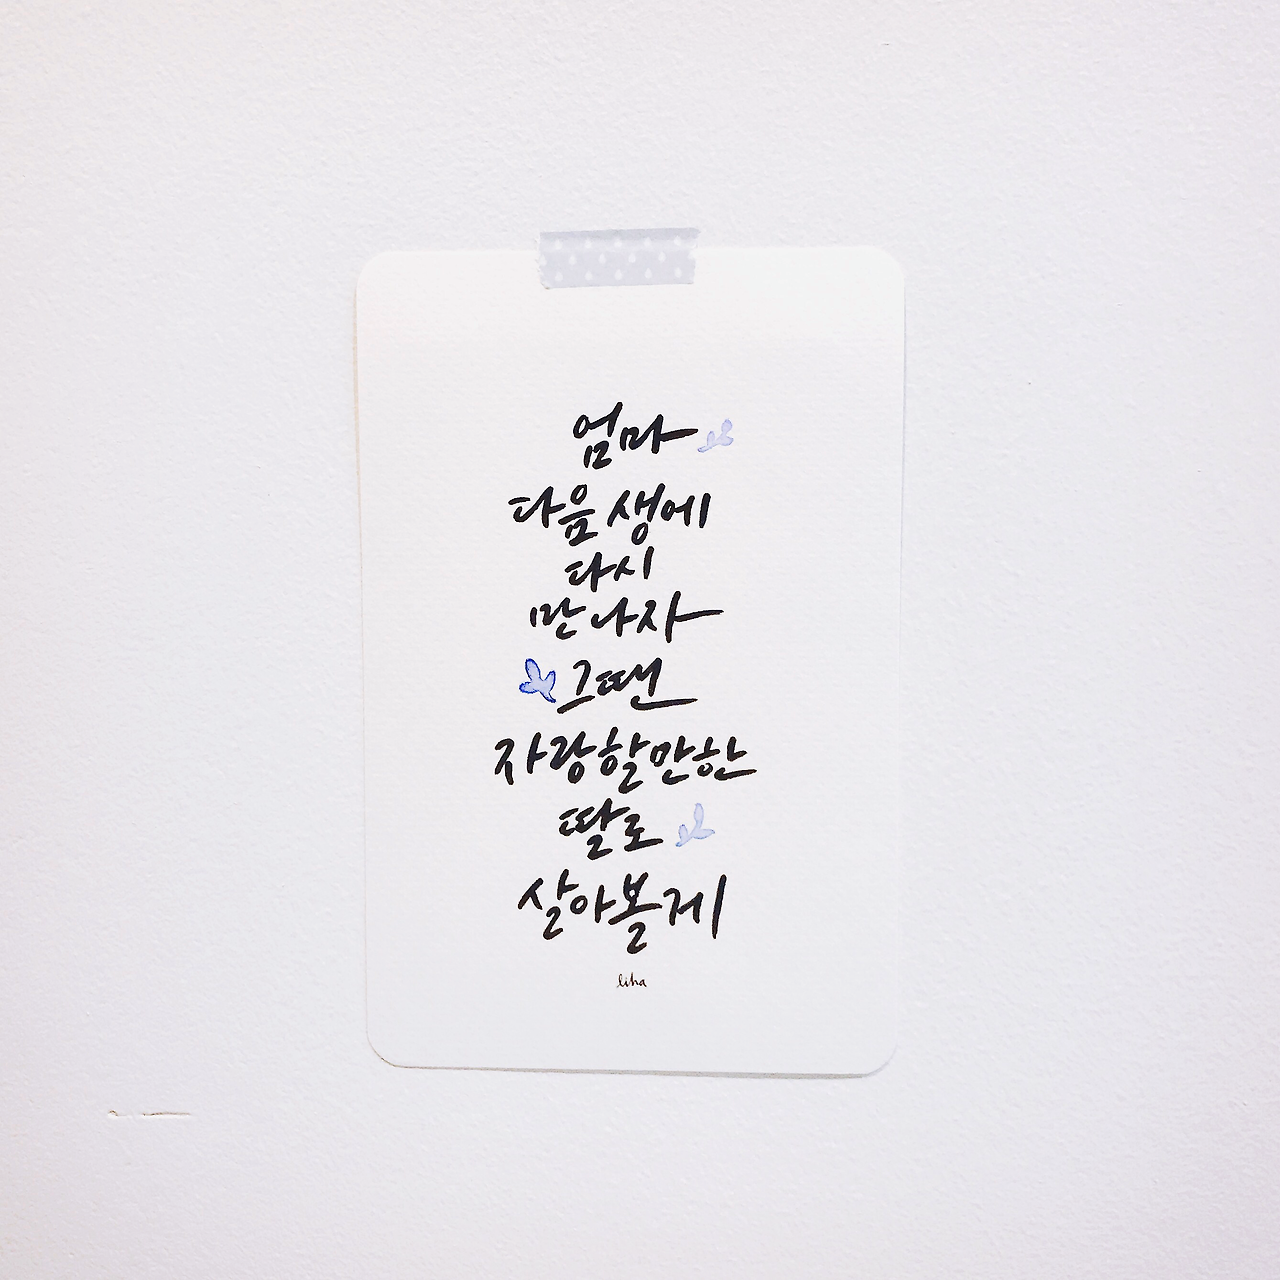 엄마
다음 생에
다시
만나자
그땐
자랑할만한
딸로
살아볼게
liha